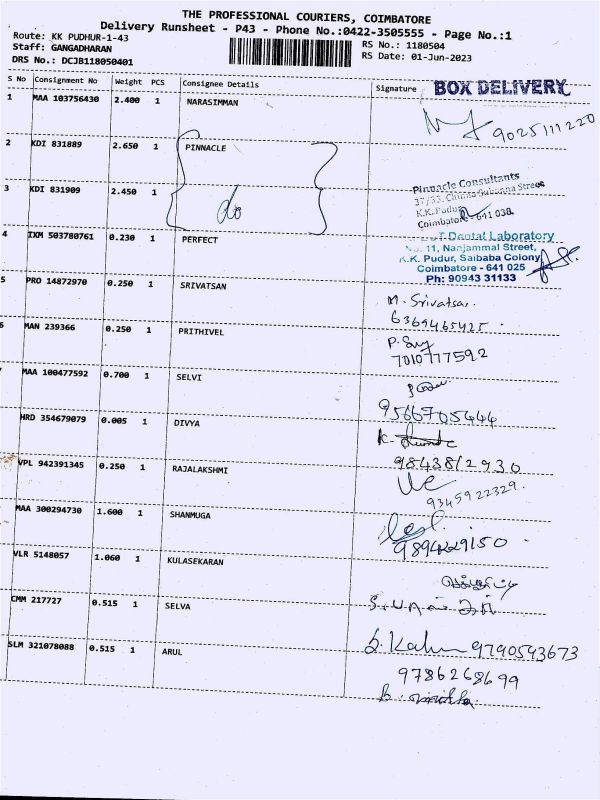 THE PROFESSIONAL COURIERS, COIMBATORE
Delivery Runsheet - P43 - Phone No.:0422-3505555 - Page No.:1
Route: KK PUDHUR-1-43
RS No.: 1180504
Staff: GANGADHARAN
RS Date: 01-Jun-2023
DRS No.: DCJB118050401
S No Consignment No Weight PCS Consignee Details Signature BOX DELIVERY
1 MAA 103756430 2.400 1 NARASIMMAN
9025111220
2 KDI 831889 2.650 1 PINNACLE
Pinnacle Consultants
3 KDI 831909 2.450 1 do
K.K.Pudur
Coimbatore - 641 038.
4 IXM 503780761 0.230 1 PERFECT
Dental Laboratory
No. 11, Nanjammal Street,
K.K. Pudur, Saibaba Colony
Coimbatore - 641 025
Ph: 90943 31133
5 PRO 14872970 0.250 1 SRIVATSAN
M. Srivatsan
6369465425
6 MAN 239366 0.250 1 PRITHIVEL
7010777592
MAA 100477592 0.700 1 SELVI
9566705444
HRD 354679079 0.005 1 DIVYA
9843812930
VPL 942391345 0.250 1 RAJALAKSHMI
9345922329
MAA 300294730 1.600 1 SHANMUGA
VLR 5148057 1.060 1 KULASEKARAN
CMM 217727 0.515 1 SELVA
SLM 321078088 0.515 1 ARUL
9790593673
9786268699